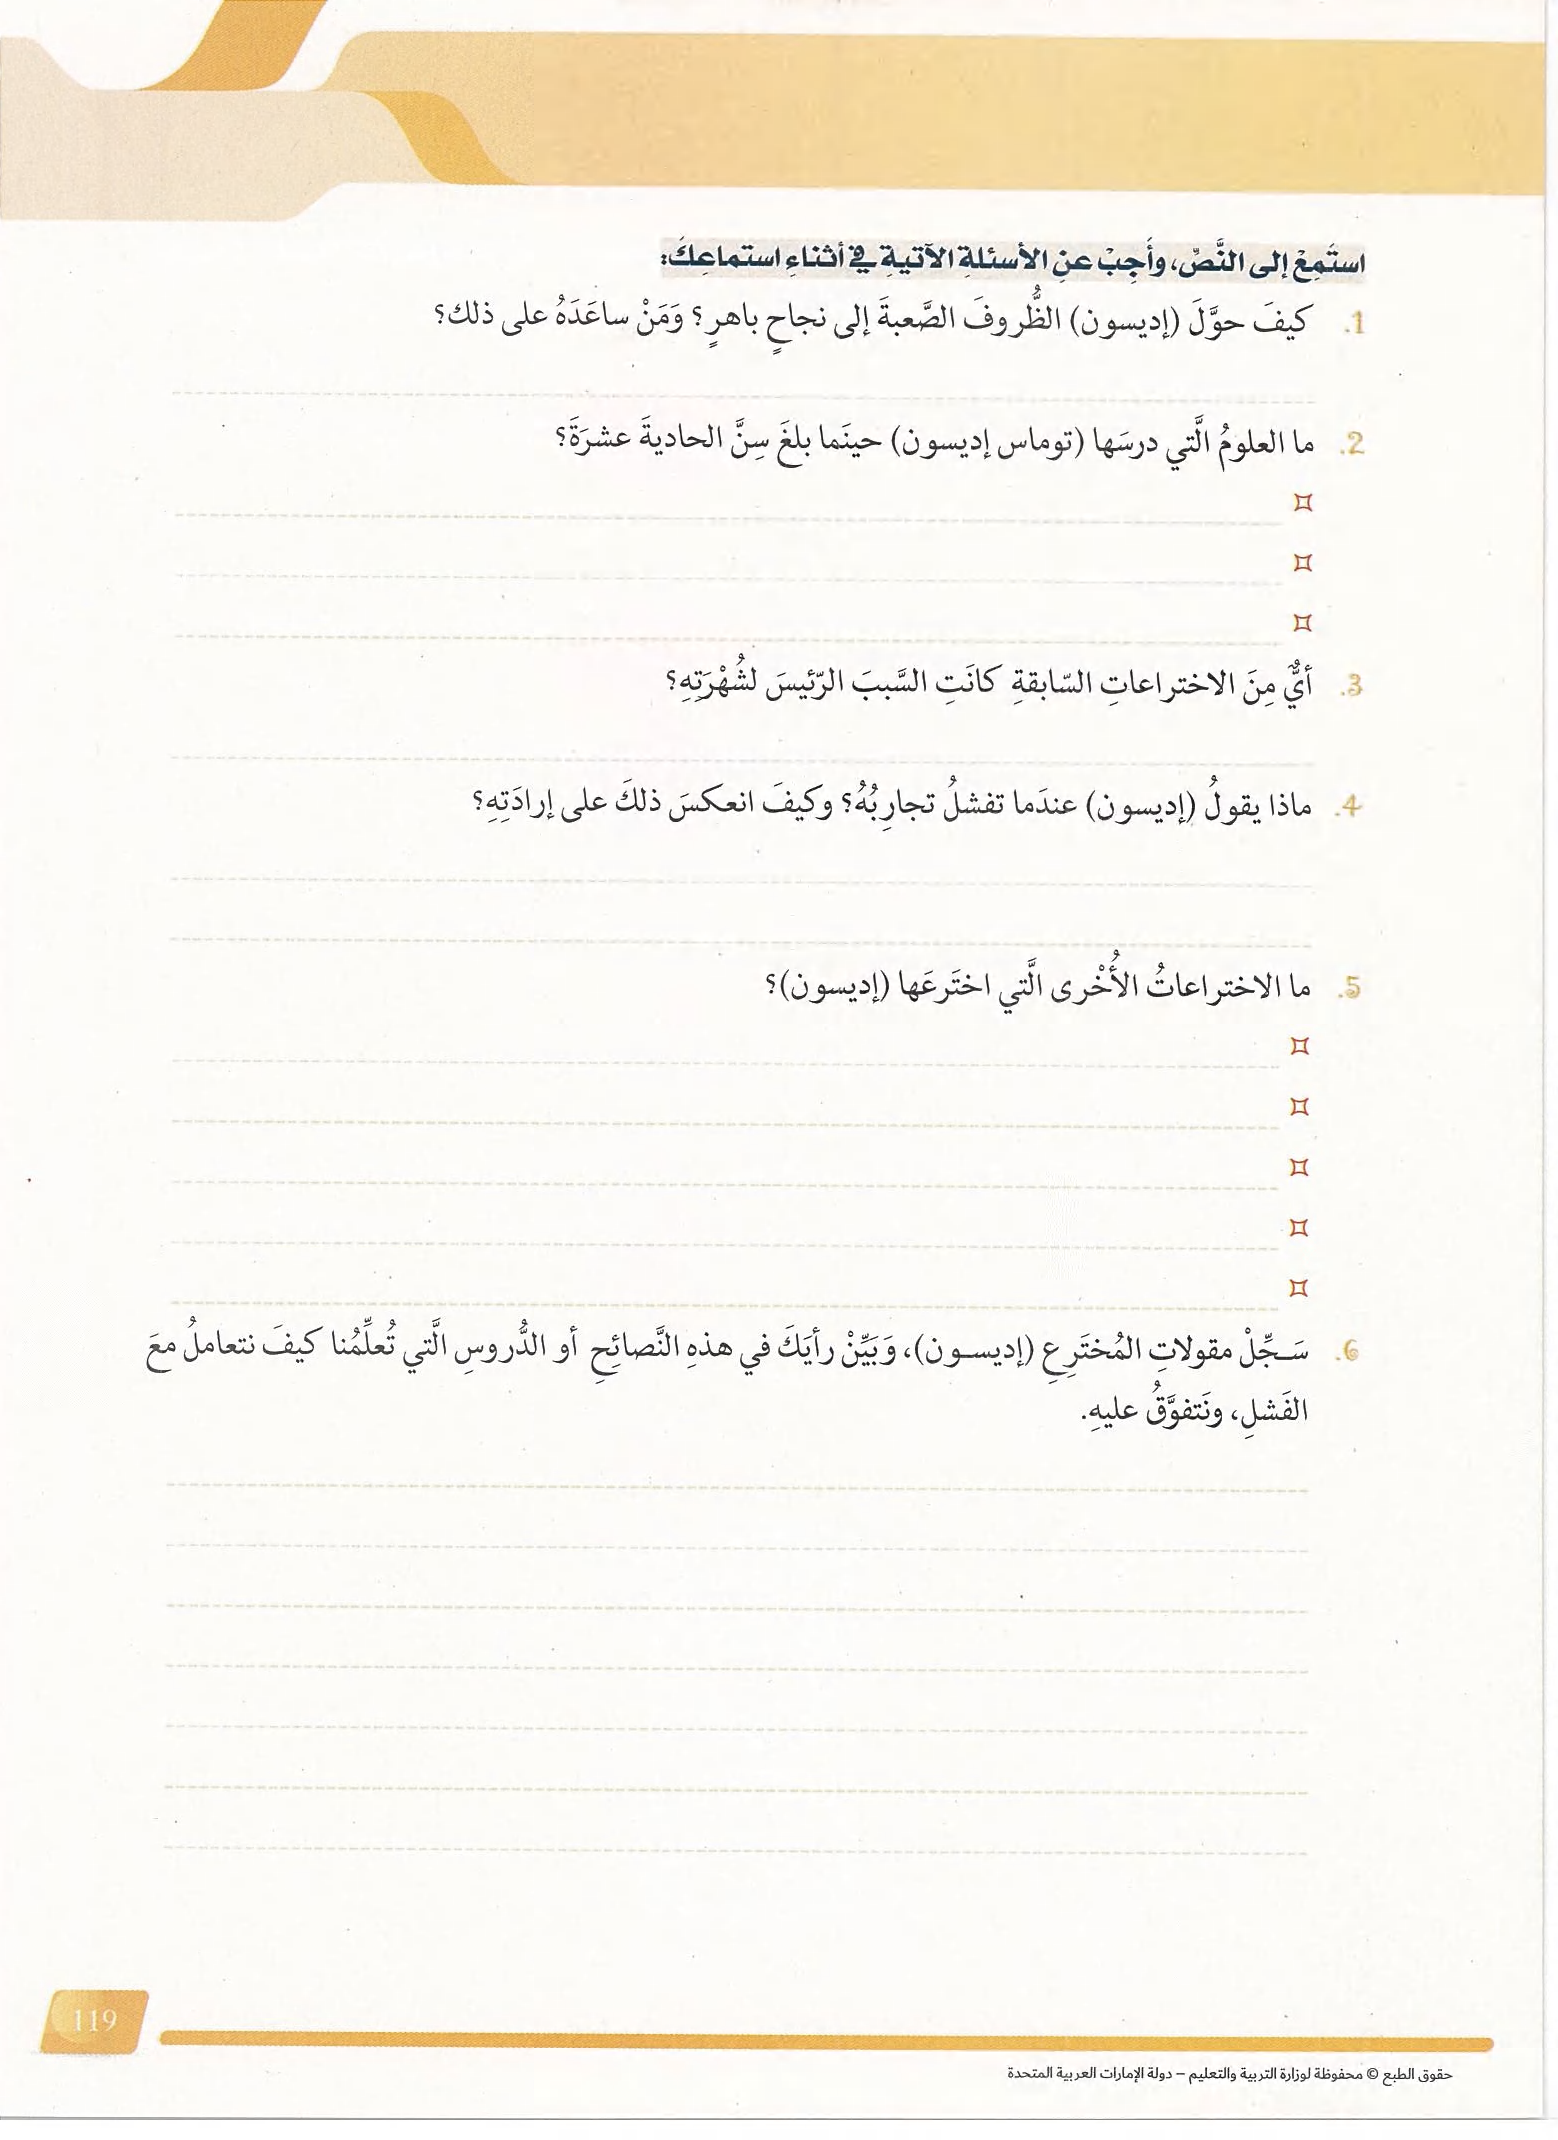 استَمِعْ إلى النَّصِّ، وأَجِبْ عنِ الأسئلةِ الآتيةِ في أثناءِ استماعِكَ:
1. كيفَ حوَّلَ (إديسون) الظُّروفَ الصَّعبةَ إلى نجاحٍ باهرٍ؟ وَمَنْ ساعَدَهُ على ذلك؟
2. ما العلومُ الَّتي درسَها (توماس إديسون) حينَما بلغَ سِنَّ الحاديةَ عشرَةَ؟
3. أيٌّ مِنَ الاختراعاتِ السّابقةِ كانَتِ السَّببَ الرّئيسَ لشُهْرَتِهِ؟
4. ماذا يقولُ (إديسون) عندَما تفشلُ تجارِبُهُ؟ وكيفَ انعكسَ ذلكَ على إرادَتِهِ؟
5. ما الاختراعاتُ الأُخْرى الَّتي اختَرعَها (إديسون)؟
6. سَـجِّلْ مقولاتِ المُختَرِعِ (إديسـون)، وَبَيِّنْ رأيَكَ في هذهِ النَّصائِحِ أو الدُّروسِ الَّتي تُعلِّمُنا كيفَ نتعاملُ معَ
الفَشلِ، ونَتفوَّقُ عليهِ.
119
حقوق الطبع © محفوظة لوزارة التربية والتعليم – دولة الإمارات العربية المتحدة